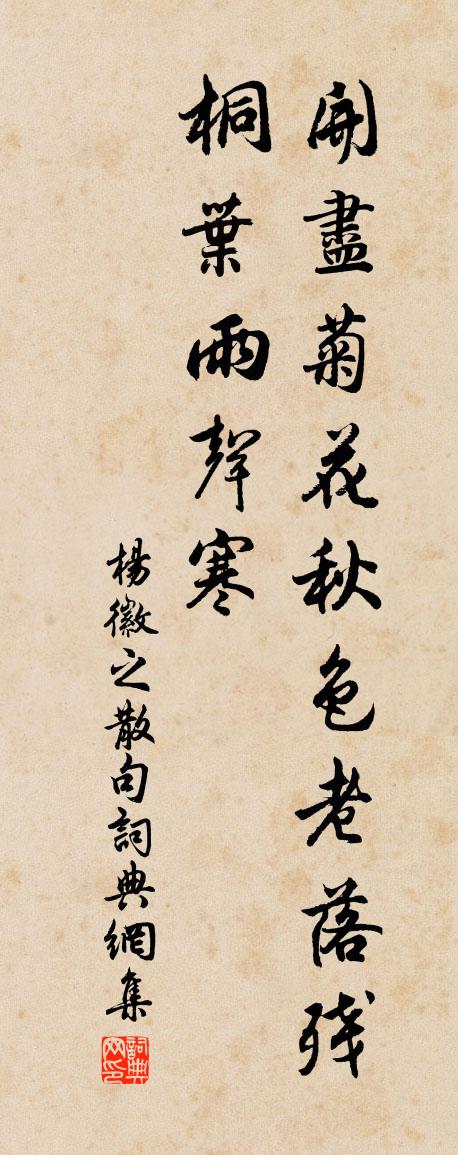 開盡菊花秋色老落残
桐葉雨聲寒
楊徽之散句詞典網集
詞典网印